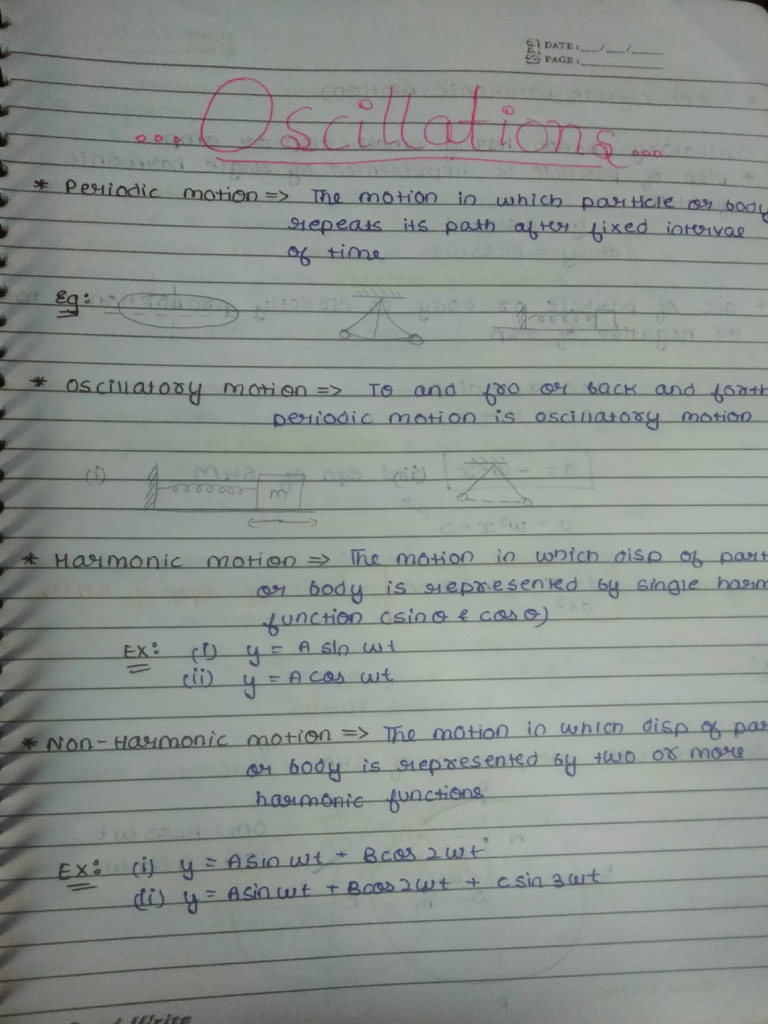 DATE: __/__/__
PAGE:
...Oscillations...
* Periodic motion => The motion in which particle or body
repeats its path after fixed interval
of time
Eg:
* Oscillatory motion => To and fro or back and forth
periodic motion is oscillatory motion
(i) m (ii)
* Harmonic motion => The motion in which disp of part
or body is represented by single harm
function (sinθ & cosθ)
Ex: (i) y = A sin wt
(ii) y = A cos wt
* Non-Harmonic motion => The motion in which disp of par
or body is represented by two or more
harmonic functions
Ex: (i) y = A sin wt + B cos 2wt
(ii) y = A sin wt + B cos 2wt + C sin 3wt